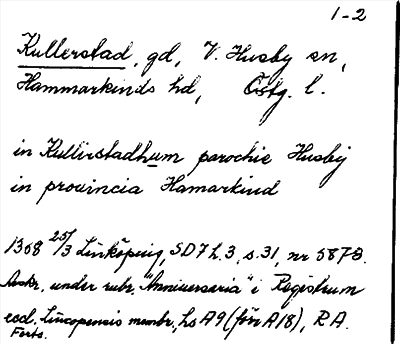 1-2
Kullerstad, gd, V. Husby sn,
Hammarkinds hd, Östg. l.
in Kullirstadhum parochie Husby
in prouincia Hamarkind
1368 25/3 Linköping, SD 7 h. 3, s. 31, nr 5878.
Avskr. under rubr. "Anniuersaria" i Registrum
eccl. Lincopensis membr., hs A9 (förr A18), RA.
Forts.